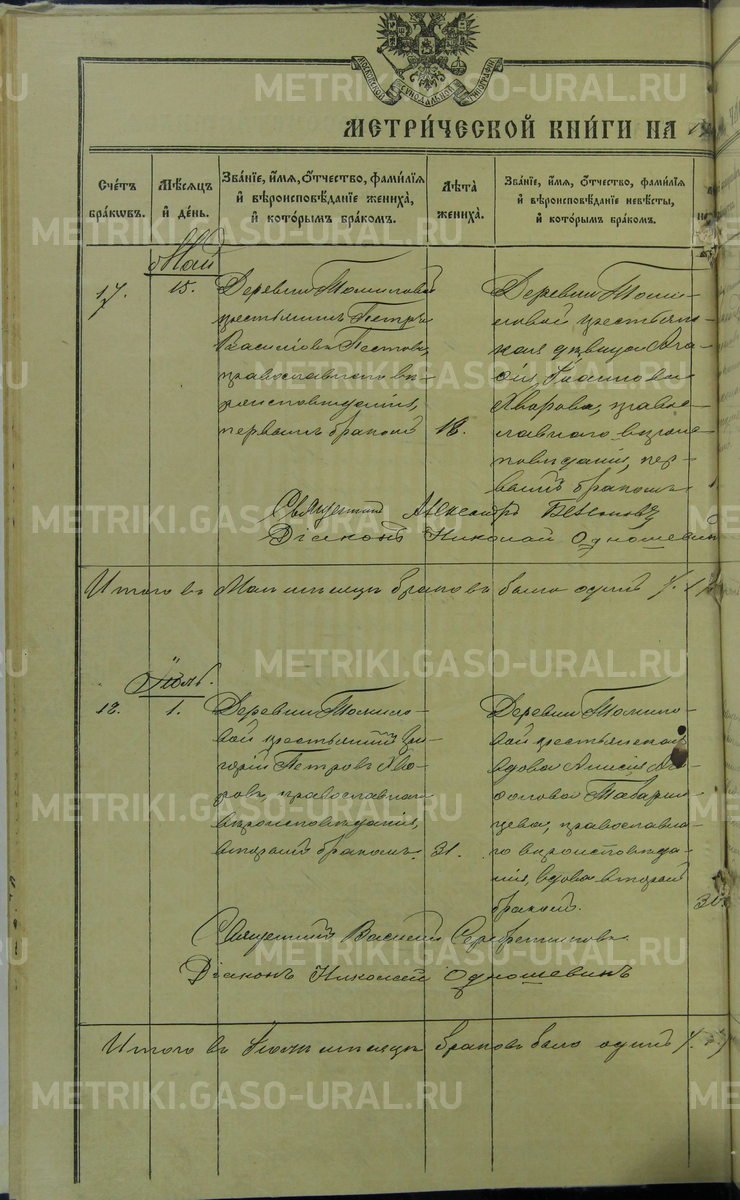 МОСКОВСКОЙ СѴНОДАЛЬНОЙ ТИПОГРАФІИ
МЕТРИ́ЧЕСКОЙ КНИ́ГИ НА
Сче́тъ бра́кѡвъ.
Мѣ́сяцъ и҆ де́нь.
Зва́нїе, и҆́мя, ѻ҆́тчество, фами́лїя
и҆ вѣроисповѣ́данїе жениха̀,
и҆ кото́рымъ бра́комъ.
Лѣ́та жениха̀.
Зва́нїе, и҆́мя, ѻ҆́тчество, фами́лїя
и҆ вѣроисповѣ́данїе невѣ́сты,
и҆ кото́рымъ бра́комъ.
Май
17. 15.
Деревни Томиловой
крестьянинъ Петръ
Васильевъ Пестовъ,
православнаго вѣ-
роисповѣданія,
первымъ бракомъ
18.
Деревни Томи-
ловой крестьян-
ская дѣвица
Іванова
православнаго вѣроис-
повѣданія, пер-
вымъ бракомъ
Священникъ Александръ
Діаконъ Николай Одношевинъ
Итого въ Маѣ мѣсяцѣ браковъ было одинъ /. 1
Іюль.
18. 1.
Деревни Томило-
вой крестьянинъ Гри-
горій Петровъ Яво-
ровъ, православнаго
вѣроисповѣданія,
вторымъ бракомъ
31.
Деревни Томило-
вой крестьянская
вдова
Табарин-
цева, православна-
го вѣроисповѣда-
нія, вторымъ
бракомъ.
30
Священникъ Василий Серебренниковъ
Діаконъ Николай Одношевинъ
Итого въ Іюлѣ мѣсяцѣ браковъ было одинъ /.
METRIKI.GASO-URAL.RU